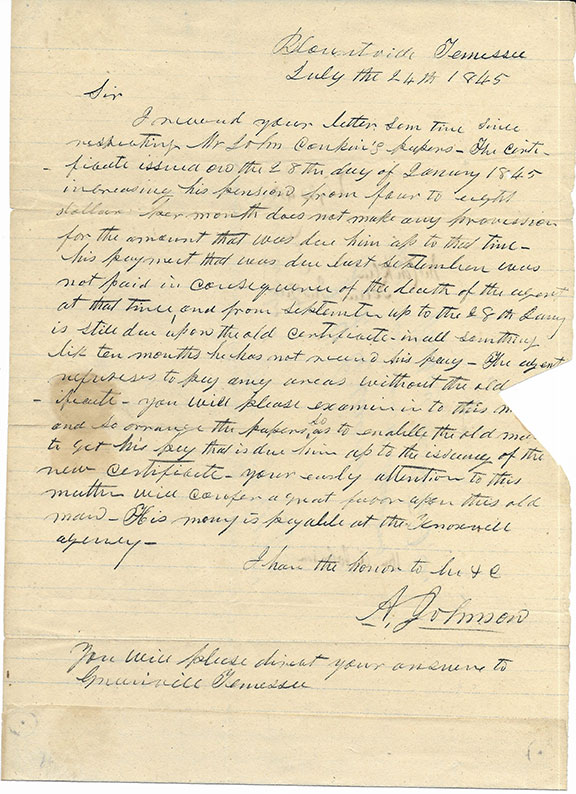 Blountville Tennessee
July the 24th 1845
Sir
I received your letter som time since
respecting Mr John Conkin's papers - The certi-
- ficate issued on the 28th day of January 1845
increasing his pension from four to eight
dollars per month does not make any provission
for the amount that was due him up to that time -
his payment that was due last september was
not paid in consequence of the death of the agent
at that time and from september up to the 28th January
is still due upon the old certificate - in all something
like ten months he has not receivd his pay - The agent
refuseses to pay any areas without the old
- ificate - you will please examin in to this m
and so arrange the papers so as to enablle the old man
to get his pay that is due him up to the issueing of the
new certificate - your early attention to this
matter will confer a great favor upon this old
man - His mony is payable at the Knoxvill
agency -
I have the honor to be &c
A. Johnson
You will please direct your answer to
Greenvill Tennessee